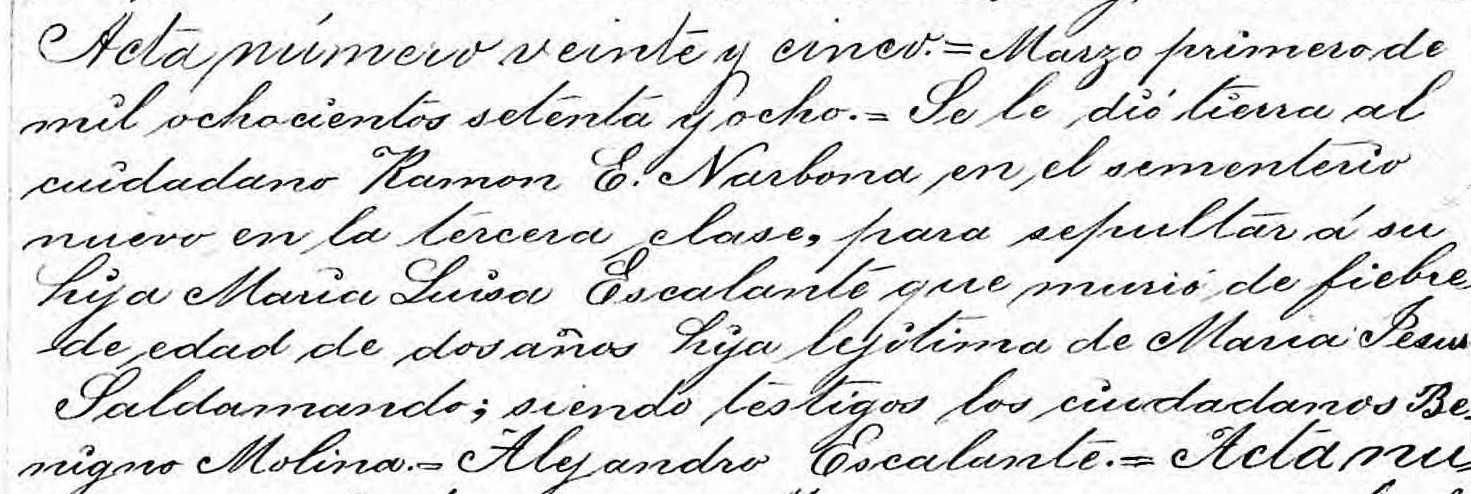 Acta número veinte y cinco.= Marzo primero de
mil ochocientos setenta y ocho.= Se le dió tierra al
cuidadano Ramon E. Narbona en el sementerio
nuevo en la tercera clase, para sepultar á su
hija Maria Luisa Escalante que murió de fiebre
de edad de dos años hija lejitima de Maria Jesus
Saldamando; siendo testigos los ciudadanos Be-
nigno Molina.= Alejandro Escalante.= Acta nu-